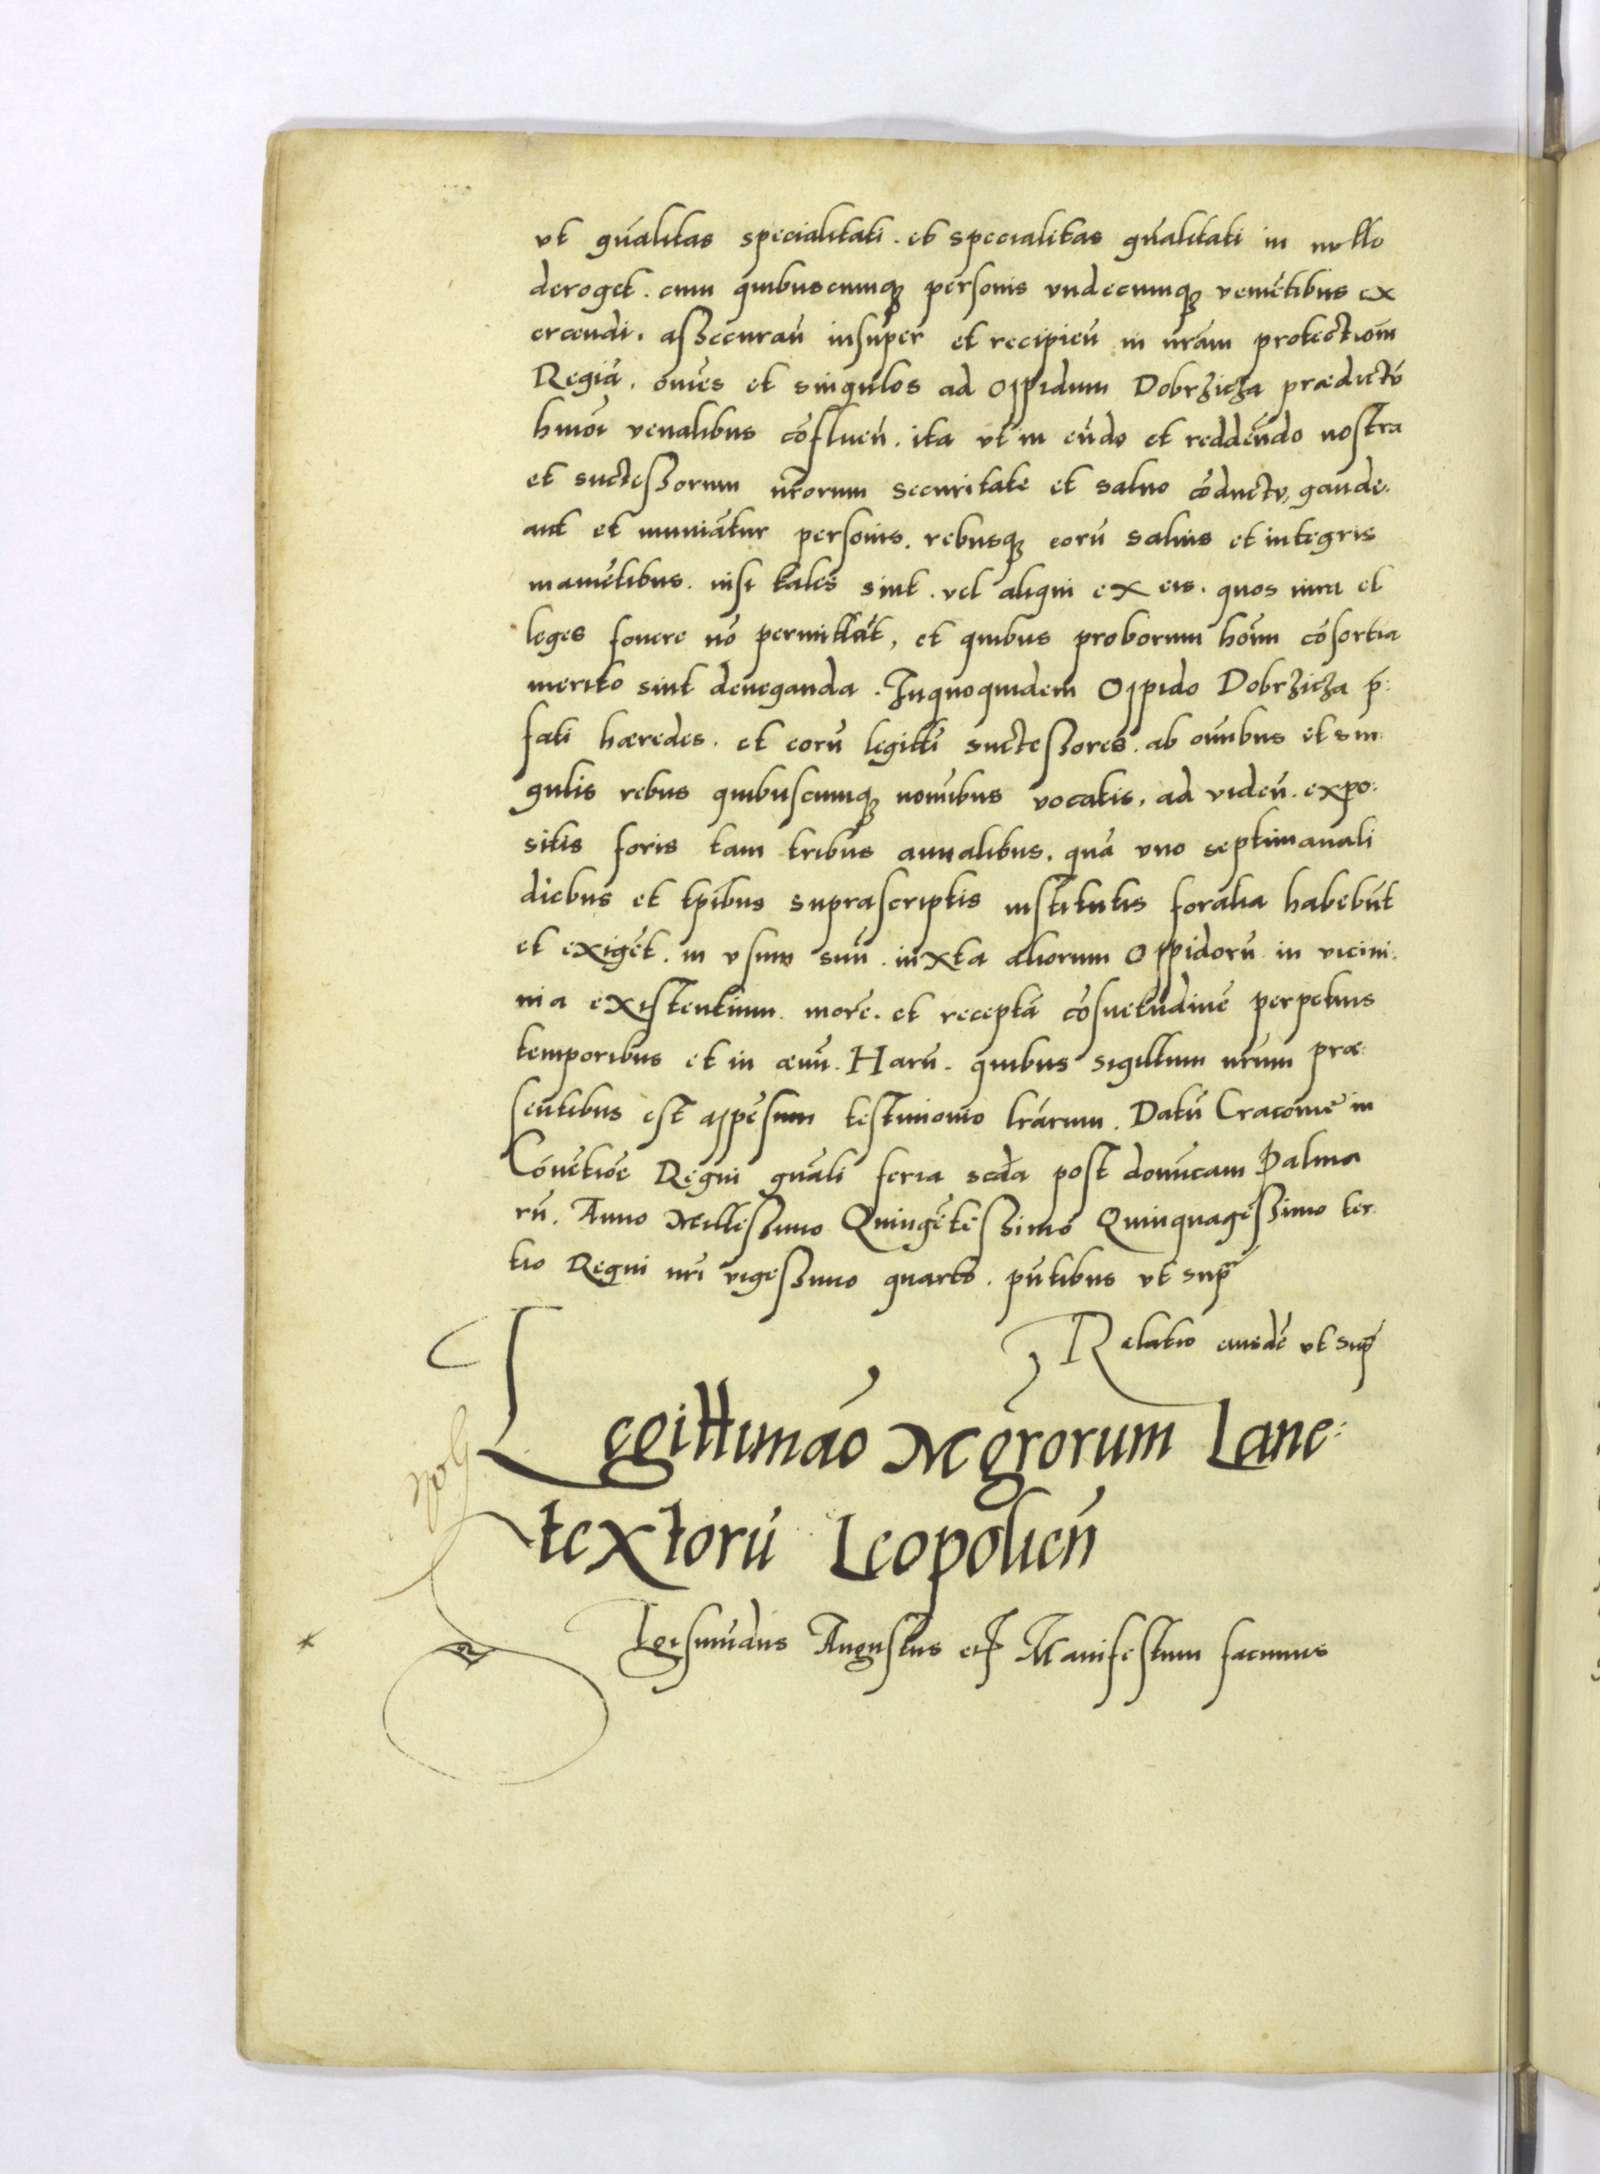 vt gnãlitas specialitati. et specialitas gnãlitati in nullo
deroget. cum quibuscumqꝫ personis vndecumqꝫ veniẽtibus ex
ercendi. assecurañ insuper et recipieñ in nrãm protectiom̃
Regiã. omẽs et singulos ad oppidum Dobrzicza prædictũ
hmõi venalibus cõflueñ. ita vt in eũdo et reddeũdo nostra
et successorum nr̃orum securitate et saluo cõductu, gaude.
ant et muniãtur personis. rebusqꝫ eorũ saluis et integris
manẽtibus. nisi tales sint. vel aliqui ex eis. quos iura et
leges fouere nõ permittãt, et quibus proborum hoĩm cõsortia
merito sint deneganda. Inquoquidem Oppido Dobrzicza p̃:
fati hæredes. et eorũ legitti successores. ab omĩbus et sin:
gulis rebus quibuscumqꝫ nomĩbus vocatis, ad videñ. expo:
sitis foris tam tribus annalibus. quã vno septimanali
diebus et tpĩbus suprascriptis institutis foralia habebũt
et exigẽt. in vsum suũ. iuxta aliorum Oppidorũ in vicini:
nia existentium. morẽ. et receptã cõsuetudinẽ perpetuis
temporibus et in æuũ. Harũ. quibus sigillum nr̃um præ:
sentibus est appẽsum testimonio lr̃arum. Datũ Cracouiẽ in
Cõuẽtiõe Regni gnãli feria scdã post domĩcam Palma
rũ. Anno Millessimo Quingẽtessimo Quinquagessimo ter:
tio Regni nr̃i vigessimo quarto. pñtibus vt sup̃
Relatio eiusdẽ vt sup̃
Legittimaõ Mgr̃orum Lane:
textorũ Leopolieñ
Sgismũdus Augustus etꝭ Manifestum facimus